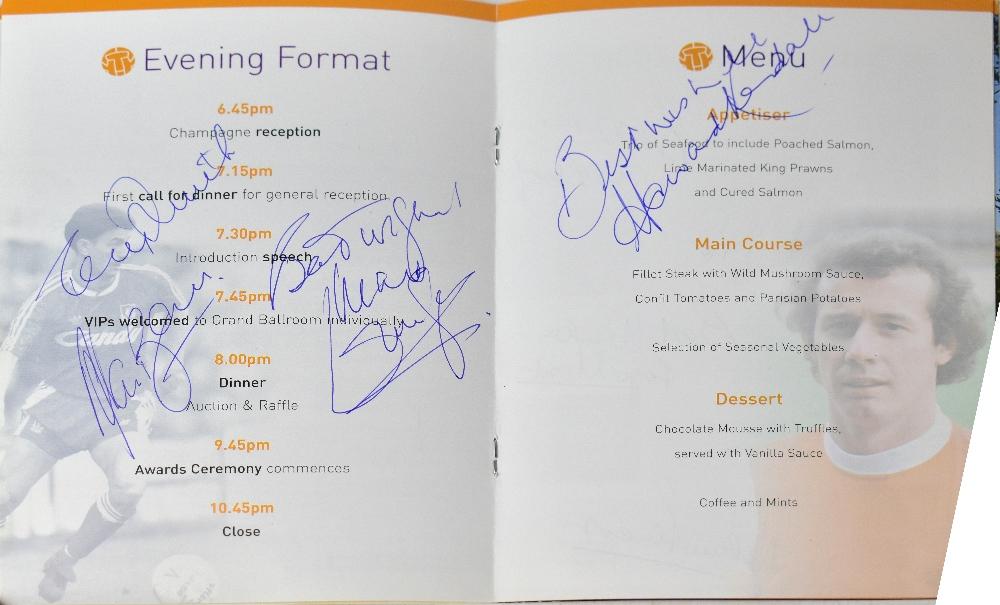 Evening Format
6.45pm
Champagne reception
7.15pm
First call for dinner for general reception
7.30pm
Introduction speech
7.45pm
VIPs welcomed to Grand Ballroom individually
8.00pm
Dinner
Auction & Raffle
9.45pm
Awards Ceremony commences
10.45pm
Close
Candy
Best Wishes
Menu
Appetiser
Trio of Seafood to include Poached Salmon,
Lime Marinated King Prawns
and Cured Salmon
Main Course
Fillet Steak with Wild Mushroom Sauce,
Confit Tomatoes and Parisian Potatoes
Selection of Seasonal Vegetables
Dessert
Chocolate Mousse with Truffles,
served with Vanilla Sauce
Coffee and Mints
Best wishes
Howard Kendall